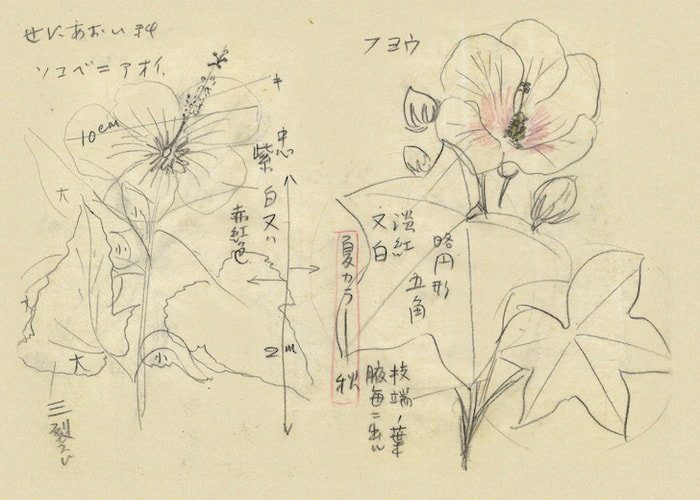 ぜにあおい科
ソコベニアオイ
キ
10cm
紫
白又ハ
赤紅色
大
小
小
大
小
2m
三裂
フヨウ
淡紅
又白
略円形
五角
夏カラ
秋
枝端ノ葉
腋毎ニ出ル